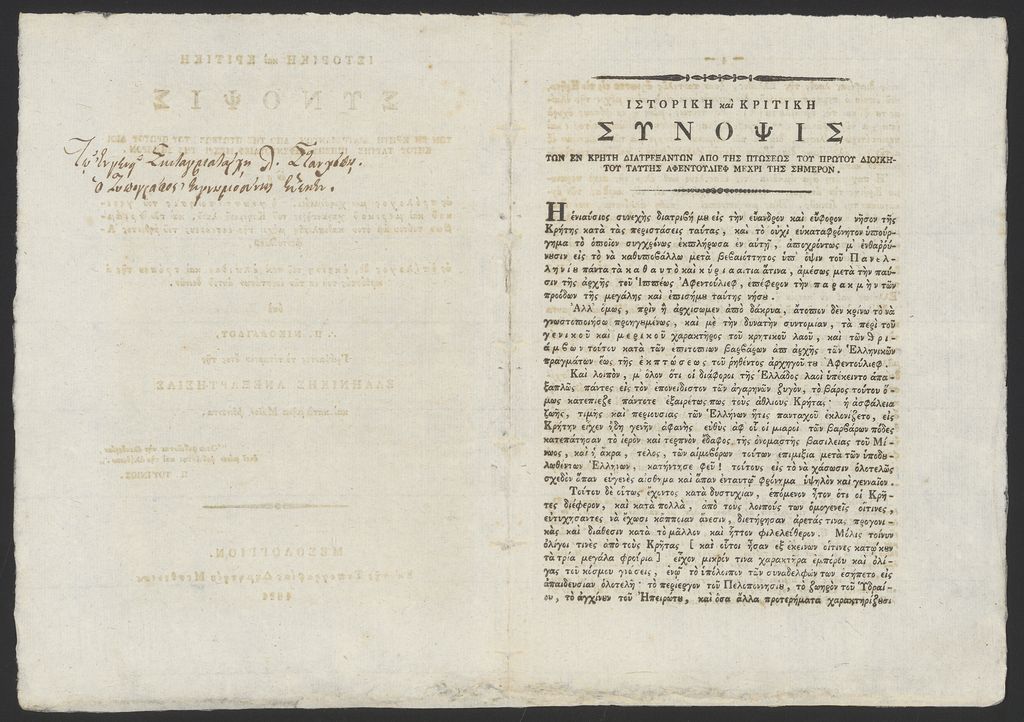 Ὁ Συπογράφος
ΙΣΤΟΡΙΚΗ καὶ ΚΡΙΤΙΚΗ
ΣΥΝΟΨΙΣ
ΤΩΝ ΕΝ ΚΡΗΤΗ ΔΙΑΤΡΕΞΑΝΤΩΝ ΑΠΟ ΤΗΣ ΠΤΩΣΕΩΣ ΤΟΥ ΠΡΩΤΟΥ ΔΙΟΙΚΗ-
ΤΟΥ ΤΑΥΤΗΣ ΑΦΕΝΤΟΥΛΙΕΦ ΜΕΧΡΙ ΤΗΣ ΣΗΜΕΡΟΝ.
Η ἐνιαύσιος συνεχὴς διατριβή μȣ εἰς τὴν εὔανδρον καὶ εὔφορον νῆσον τῆς
Κρήτης κατὰ τὰς περιστάσεις ταύτας, καὶ τὸ οὐχὶ εὐκαταφρόνητον ὑπούρ-
γημα τὸ ὁποῖον συγχρόνως ἐκπλήρωσα ἐν αὐτῇ, ἀποχρώντως μ' ἐνθαῤῥύ-
νεσιν εἰς τὸ νὰ καθυποβάλλω μετὰ βεβαιότητος ὑπ' ὄψιν τοῦ Πανελ-
ληνίȣ πάντα τὰ καθαυτὸ καὶ κύρια αἴτια ἅτινα, ἀμέσως μετὰ τὴν παῦ-
σιν τῆς ἀρχῆς τοῦ Ἱππέως Ἀφεντούλιεφ, ἐπέφερον τὴν παρακμὴν τῶν
προόδων τῆς μεγάλης καὶ ἐπισήμȣ ταύτης νήσȣ.
Ἀλλ' ὅμως, πρὶν ἢ ἀρχίσωμεν ἀπὸ δάκρυα, ἄτοπον δὲν κρίνω τὸ νὰ
γνωστοποιήσω προηγȣμένως, καὶ μὲ τὴν δυνατὴν συντομίαν, τὰ περὶ τοῦ
γενικοῦ καὶ μερικοῦ χαρακτῆρος τοῦ κρητικοῦ λαοῦ, καὶ τῶν θρι-
άμβων τούτου κατὰ τῶν ἐπιτοπίων βαρβάρων ἀπ' ἀρχῆς τῶν Ἑλληνικῶν
πραγμάτων ἕως τῆς ἐκπτώσεως τοῦ ῥηθέντος ἀρχηγοῦ τȣ Ἀφεντούλιεφ.
Καὶ λοιπὸν, μ' ὅλον ὅτι οἱ διάφοροι τῆς Ἑλλάδος λαοὶ ὑπέκειντο ἁπα-
ξαπλῶς πάντες εἰς τὸν ἐπονείδιστον τῶν ἀγαρηνῶν ζυγὸν, τὸ βάρος τούτου ὅ-
μως κατεπίεζε πάντοτε ἐξαιρέτως πως τοὺς ἀθλίους Κρῆτας· ἡ ἀσφάλεια
ζωῆς, τιμῆς καὶ περιουσίας τῶν Ἑλλήνων ἥτις πανταχοῦ ἐκλονίζετο, εἰς
Κρήτην εἶχεν ἤδη γενῆν ἀφανὴς εὐθὺς ἀφ' οὗ οἱ μιαροὶ τῶν βαρβάρων πόδες
κατεπάτησαν τὸ ἱερὸν καὶ τερπνὸν ἔδαφος τῆς ὀνομαστῆς βασιλείας τοῦ Μί-
νωος, καὶ ἡ ἄκρα, τέλος, τῶν αἱμοβόρων τούτων ἐπιμιξία μετὰ τῶν ὑποδȣ-
λωθέντων Ἑλλήνων, κατήντησε φεῦ! τούτους εἰς τὸ νὰ χάσωσιν ὁλοτελῶς
σχεδὸν ἅπαν εὐγενὲς αἴσθημα καὶ ἅπαν ἐνταυτῷ φρόνημα ὑψηλὸν καὶ γενναῖον.
Τούτου δὲ οὕτως ἔχοντος κατὰ δυστυχίαν, ἑπόμενον ἦτον ὅτι οἱ Κρῆ-
τες διέφερον, καὶ κατὰ πολλὰ, ἀπὸ τοὺς λοιποὺς των ὁμογενεῖς οἵτινες,
εὐτυχήσαντες νὰ ἔχωσι κάποιαν ἄνεσιν, διετήρησαν ἀρετάς τινας προγονι-
κὰς καὶ διάθεσιν κατὰ τὸ μᾶλλον καὶ ἧττον φιλελεύθερον. Μόλις τοίνυν
ὀλίγοι τινὲς ἀπὸ τοὺς Κρῆτας [ καὶ οὗτοι ἦσαν ἐξ ἐκείνων οἵτινες κατῴκȣν
τὰ τρία μεγάλα φρούρια ] εἶχον μικρόν τινα χαρακτῆρα ἐμπόρου καὶ ὀλί-
γας τοῦ κόσμου γνώσεις, ἐνῷ τὸ ὑπόλοιπον τῶν συναδελφῶν των ἐσήπετο εἰς
ἀπαιδευσίαν ὁλοτελῆ· τὸ περίεργον τοῦ Πελοποννησίȣ, τὸ ζωηρὸν τοῦ Ὑδραί-
ου, τὸ ἀγχίνουν τοῦ Ἠπειρώτȣ, καὶ ὅσα ἄλλα προτερήματα χαρακτηρίζȣσι